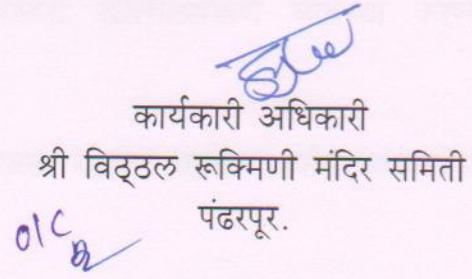 कार्यकारी अधिकारी
श्री विठ्ठल रूक्मिणी मंदिर समिती
पंढरपूर.
O/C